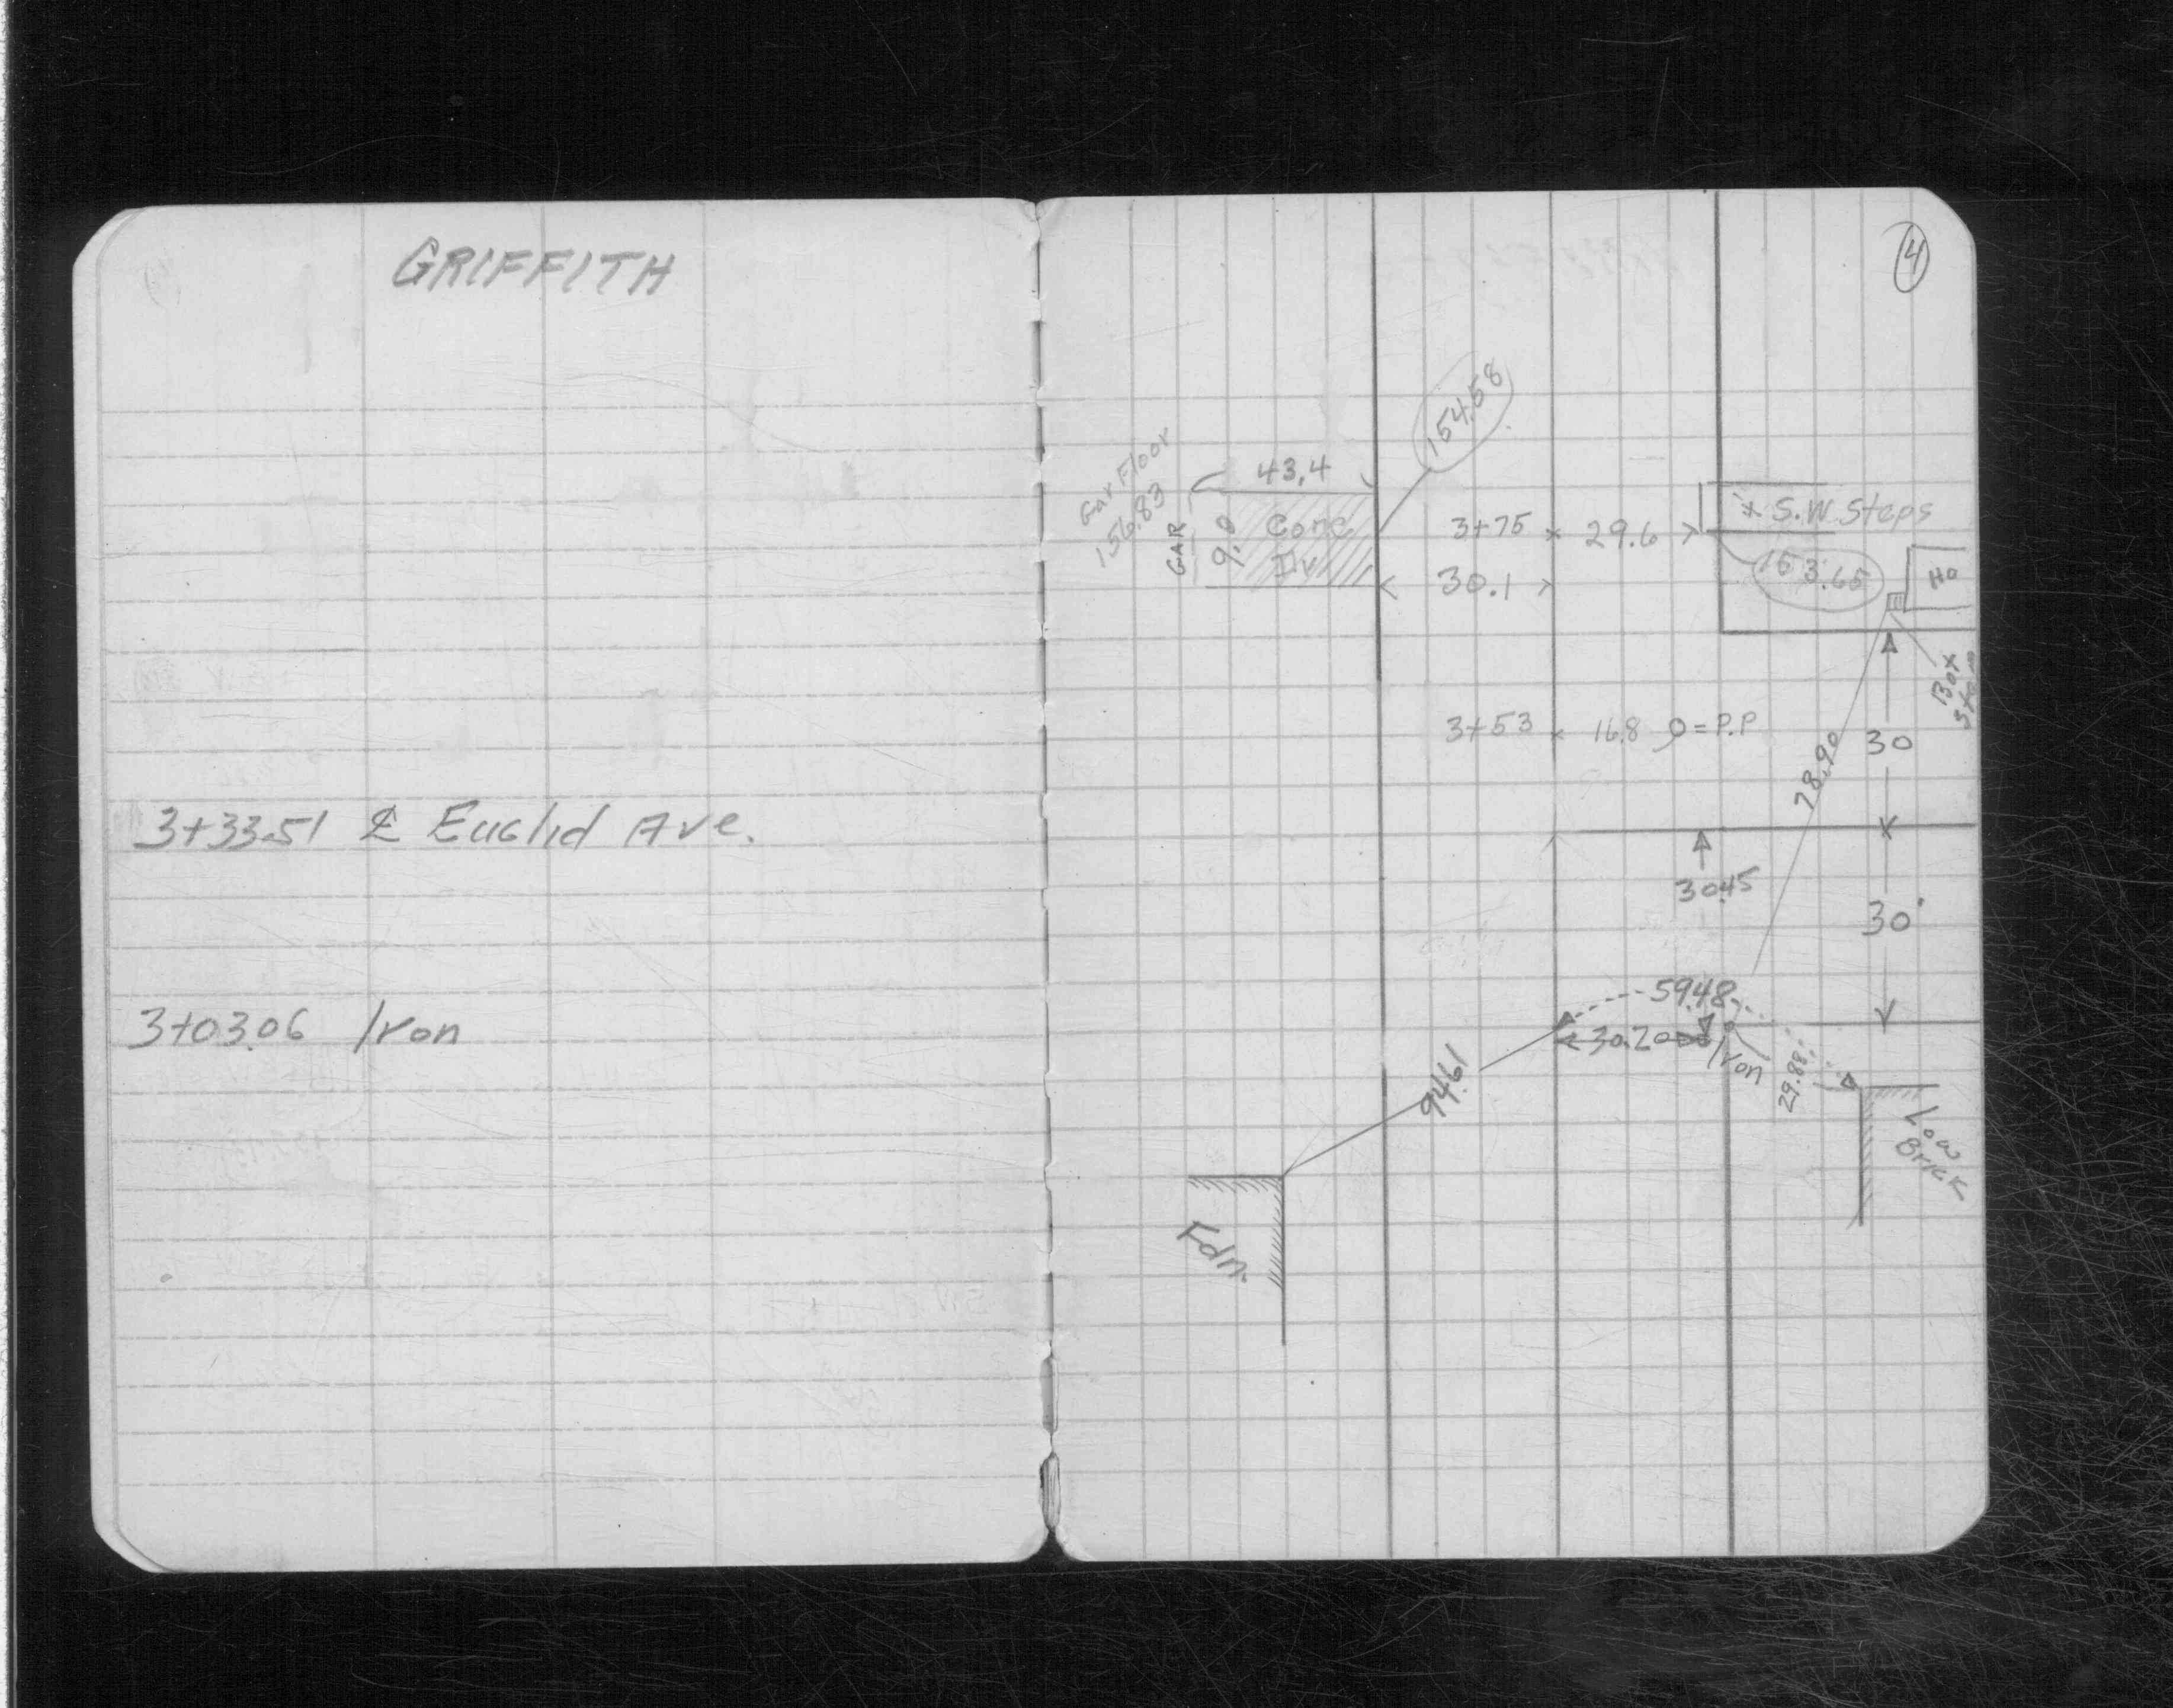 GRIFFITH
3+33.51 ℄ Euclid Ave.
3+03.06 Iron
4
154.58
Gar Floor
156.83
GAR
43.4
9.0
Conc
Dv
3+75 × 29.6
30.1
S.W. Steps
153.65
Ho
Box
3+53 × 16.8 = P.P
78.90
30
30.45
30'
59.48
30.20
Iron
29.88
94.61
Low
Brick
Fdn.